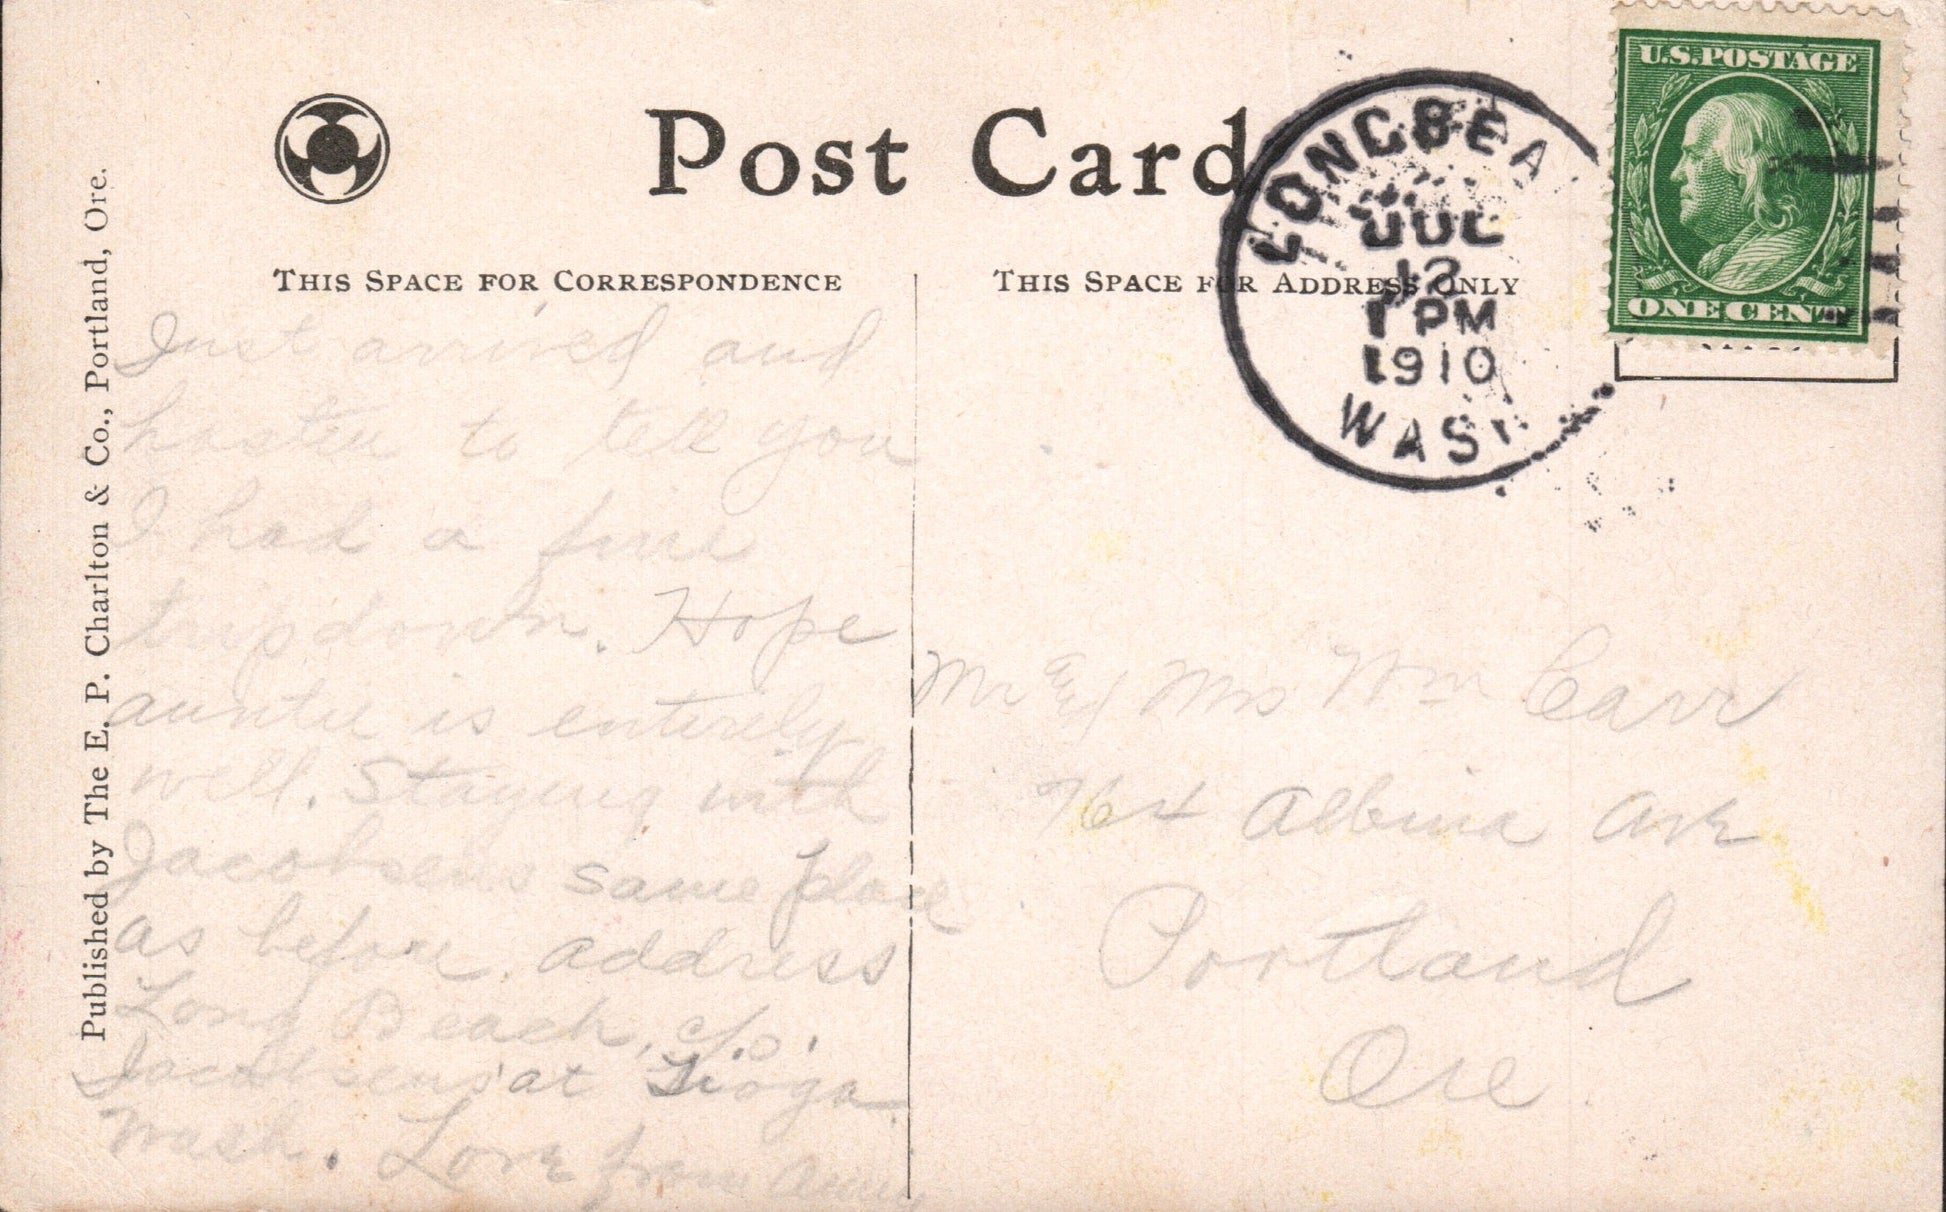 Post Card
THIS SPACE FOR CORRESPONDENCE
THIS SPACE FOR ADDRESS ONLY
Published by The E. P. Charlton & Co., Portland, Ore.
U.S. POSTAGE
ONE CENT
LONGBEA
JUL
12
1 PM
1910
WASH
Just arrived and
hasten to tell you
I had a fine
trip down. Hope
auntie is entirely
well. Staying with
Jacobsens same place
as before. address
Long Beach, c/o.
Jacobsens at Tioga
Wash. Love from
Mr and Mrs Wm Carr
764 Albina Ave
Portland
Ore.